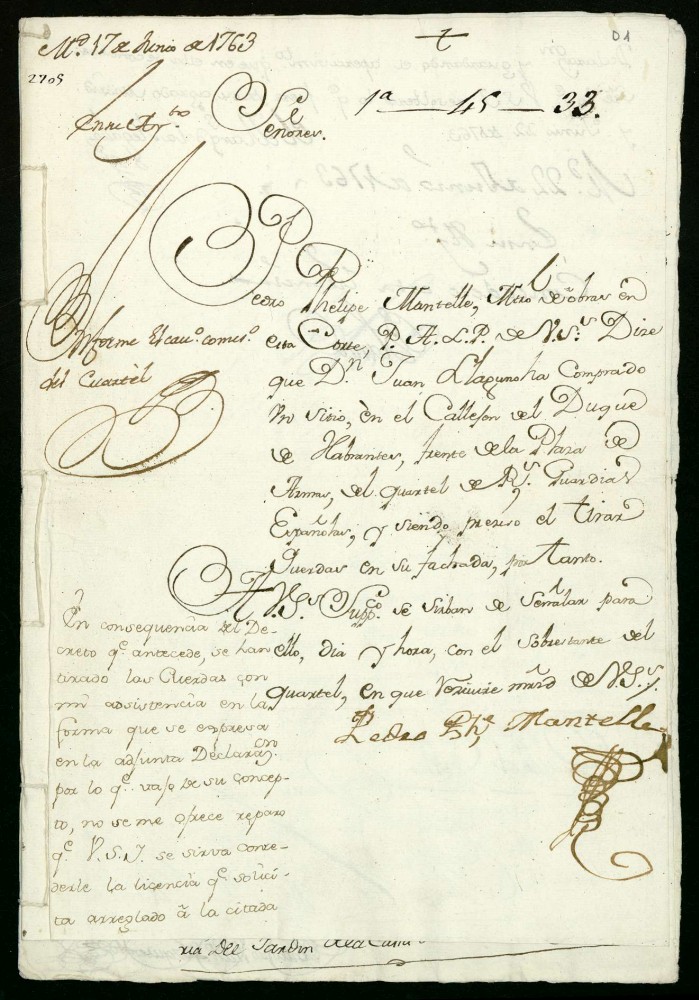 M.d 17 de Junio de 1763
D1
2705
1ª — 45 — 33.
En su Ay.to
Señores.
Pedro Phelipe Mantelle, Mrô de obras en
esta Corte, P. A. L. P. de V.Ss Dize
que D.n Juan Llaguno ha Comprado
Un sitio, en el Callejon del Duque
de Habrantes, frente de la Plaza de
Armas, del quartel de R.s Guardias
Españolas, y siendo preciso el tirar
Cuerdas en su fachada, por tanto.
A V.Ss Supp.co se sirban de Señalar para
ello, dia y hora, con el Sobrestante del
quartel, en que rezivire mrd de V.Ss
Pedro Ph.e Mantelle
Informe el cav.o comis.o
del Cuartèl
En consequencia del De-
creto q.e antecede, se han
tirado las Cuerdas con
mi adsistencia en la
forma que se expresa
en la adjunta Declaraz.on
por lo q.e vajo de su concep-
to, no se me ofrece reparo
q.e V.S.I. se sirva conce-
derle la licencia q.e solici-
ta arreglado â la citada
ria del Jardin